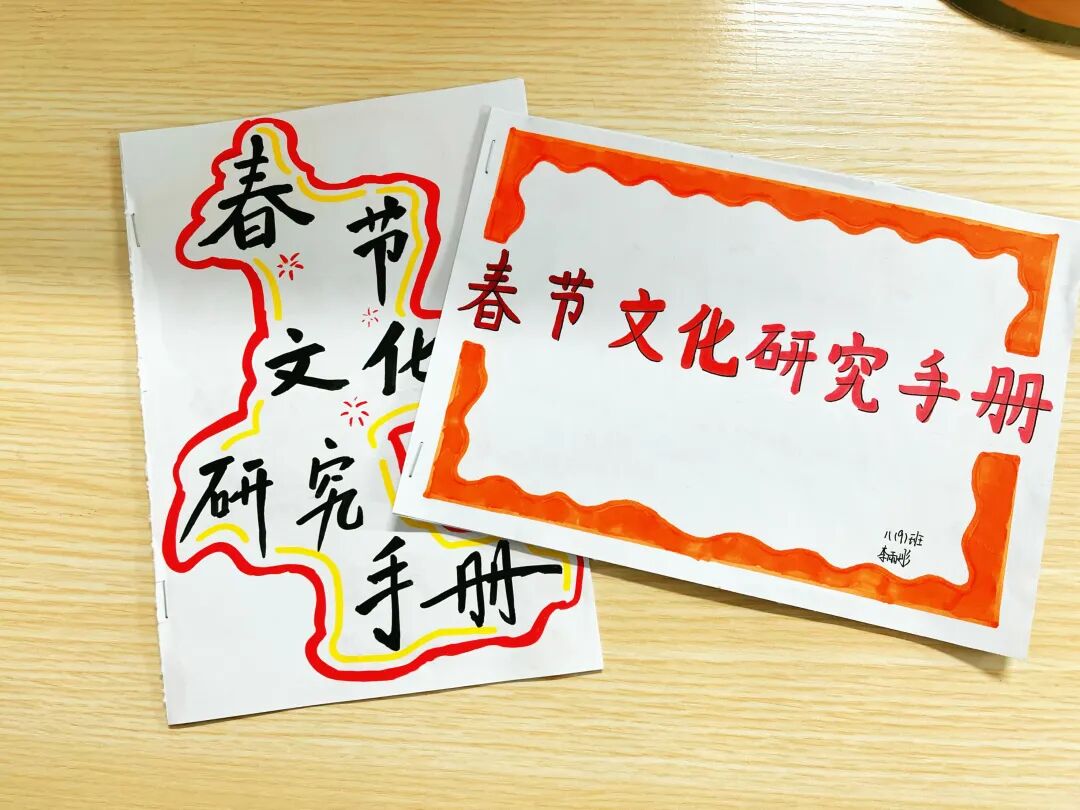 春节
文化
研究
手册
春节文化研究手册
八(9)班
李雨彤